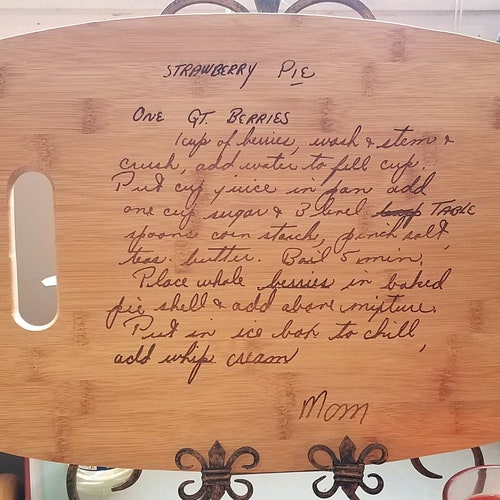 STRAWBERRY PIE
ONE QT. BERRIES
1 cup of berries, wash & stem &
crush, add water to fill cup.
Put cup juice in pan add
one cup sugar & 3 level TABLE
spoons corn starch, pinch salt,
teas. butter. Boil 5 min,
Place whole berries in baked
pie shell & add above mixture.
Put in ice box to chill,
add whip cream
Mom